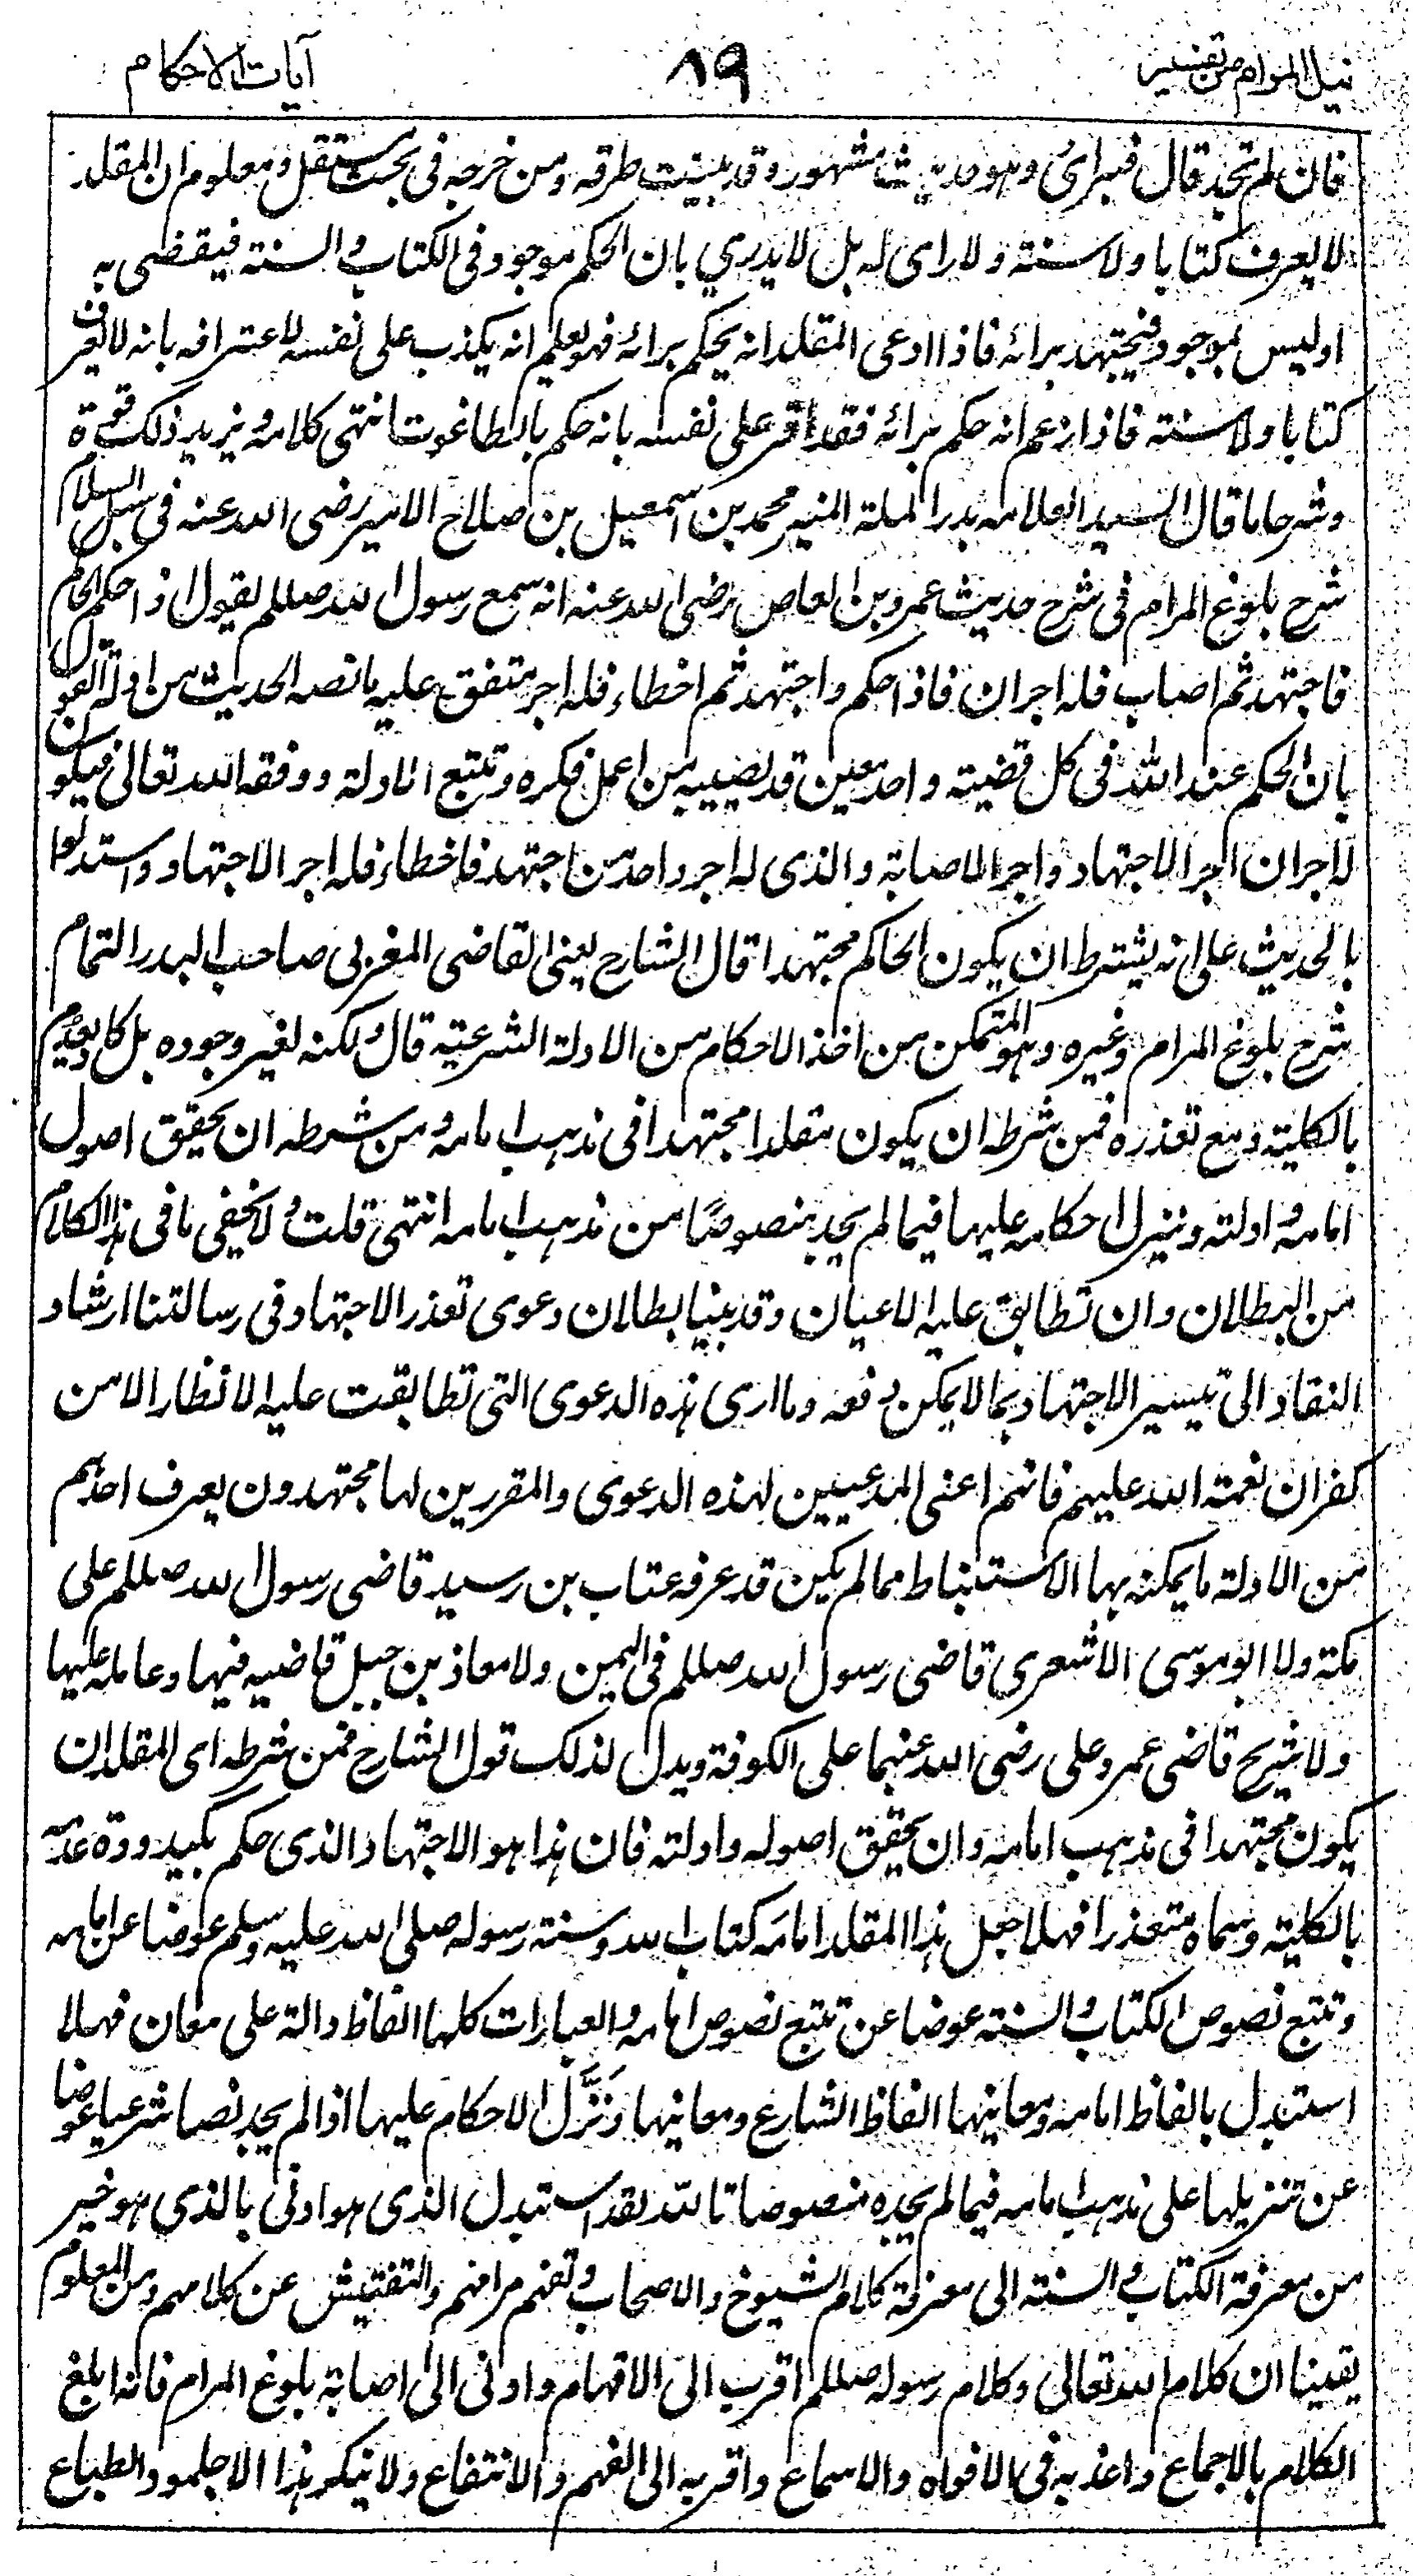 نيل المرام من تفسير ٨٩ آيات الاحكام
فان لم تجد قال فبرائ وهو حديث مشهور وقد بينت طرقه ومن خرجه فى بحث مستقل ومعلوم ان المقلد
لا يعرف كتابا ولا سنته ولا راى له بل لا يدري بان الحكم موجود فى الكتاب والسنته فيقضى به
اوليس بموجود فيجتهد برائه فاذا ادعى المقلد انه يحكم برائه فهو يعلم انه يكذب على نفسه لاعترافه بانه لا يعرف
كتابا ولا سنته فاذا زعم انه حكم برائه فقد اقر على نفسه بانه حكم بالطاغوت انتهى كلامه ويزيد ذلك قوة
وشرحا ما قال السيد العلامه بدر الملة المنير محمد بن اسمعيل بن صلاح الامير رضى الله عنه فى سبل السلام
شرح بلوغ المرام فى شرح حديث عمرو بن العاص رضى الله عنه انه سمع رسول الله صللم يقول اذا حكم الحاكم
فاجتهد ثم اصاب فله اجران فاذا حكم واجتهد ثم اخطاء فله اجر متفق عليه ما نصه الحديث من ادلة القول
بان الحكم عند الله فى كل قضيته واحد معين قد يصيبه من اعمل فكره وتتبع الادلة ووفقه الله تعالى فيكون
له اجران اجر الاجتهاد واجر الاصابة والذى له اجر واحد من اجتهد فاخطاء فله اجر الاجتهاد واستدلوا
بالحديث على انه يشترط ان يكون الحاكم مجتهدا قال الشارح يعنى القاضى المغربى صاحب البدر التمام
شرح بلوغ المرام وغيره وهو المتمكن من اخذ الاحكام من الادلة الشرعية قال ولكنه يغير وجوده بل كاد يعدم
بالكلية ومع تعذره فمن شرطه ان يكون مقلدا مجتهدا فى مذهب امامه ومن شرطه ان يحقق اصول
امامه وادلته وينزل احكامه عليها فيما لم يجد منصوصًا من مذهب امامه انتهى قلت ولا يخفى ما فى هذا الكلام
من البطلان وان تطابق عليه الاعيان وقد بينا بطلان دعوى تعذر الاجتهاد فى رسالتنا ارشاد
النقاد الى تيسير الاجتهاد بما لا يمكن دفعه وما ارى هذه الدعوى التى تطابقت عليه الانظار الا من
كفران نعمة الله عليهم فانهم اعنى المدعيين لهذه الدعوى والمقررين لها مجتهدون يعرف احدهم
من الادلة ما يمكنه بها الاستنباط مما لم يكن قد عرفه عتاب بن رسيد قاضى رسول الله صللم على
مكة ولا ابو موسى الاشعرى قاضى رسول الله صللم فى اليمن ولا معاذ بن جبل قاضيه فيها وعامله عليها
ولا شريح قاضى عمر وعلى رضى الله عنهما على الكوفة ويدل لذلك قول الشارح فمن شرطه اى المقلد ان
يكون مجتهدا فى مذهب امامه وان يحقق اصوله وادلته فان هذا هو الاجتهاد الذى حكم بكيدودة عدمه
بالكلية وسماه متعذرا فهلا جعل هذا المقلد امامه كتاب الله وسنته رسوله صلى الله عليه وسلم عوضا عن امامه
وتتبع نصوص الكتاب والسنته عوضا عن تتبع نصوص امامه والعبارات كلها الفاظ دالة على معان فهلا
استبدل بالفاظ امامه ومعانيها الفاظ الشارع ومعانيها ونَزَّل الاحكام عليها اذا لم يجد نصا شرعيا عوضا
عن تنزيلها على مذهب امامه فيما لم يجده منصوصا تالله لقد استبدل الذى هو ادنى بالذى هو خير
من معرفة الكتاب والسنته الى معرفة كلام الشيوخ والاصحاب وتفهم مرامهم والتفتيش عن كلامهم ومن المعلوم
يقينا ان كلام الله تعالى وكلام رسوله صللم اقرب الى الافهام وادنى الى اصابة بلوغ المرام فانه ابلغ
الكلام بالاجماع واعذبه فى الافواه والاسماع واقربه الى الفهم والانتفاع ولا ينكر هذا الا جلمود الطباع